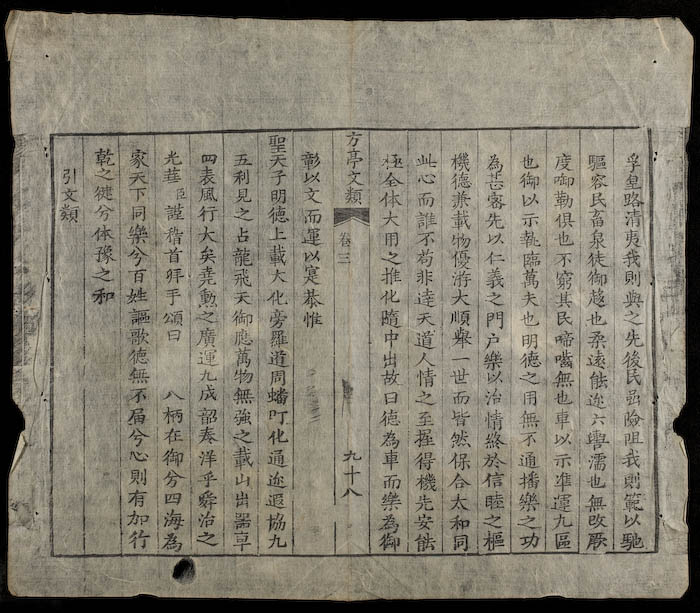 孚皇路清夷我則與之先後民嵒險阻我則範以馳
驅容民畜泉徒御越也柔遠能迩六轡濡也無改厥
度啣勒俱也不窮其民啼嚙無也車以示準運九區
也御以示軌臨萬夫也明德之用無不通播樂之功
為甚審先以仁義之門户樂以治情終於信睦之樞
機德兼載物優游大順舉一世而皆然保合太和同
此心而誰不苟非達天道人情之至握得機先安能
極全体大用之推化隨中出故曰德為車而樂為御
方亭文類
卷三
九十八
彰以文而運以寔恭惟
聖天子明德上載大化旁羅道周蟠吖化通迩遐協九
五利見之占龍飛天御應萬物無疆之載山出器卓
四表風行大矣堯勲之廣運九成韶奏洋乎舜治之
光華臣謹稽首拜手頌曰 八柄在御兮四海為
家天下同樂兮百姓謳歌德無不届兮心則有加行
乾之健兮体豫之和
引文類